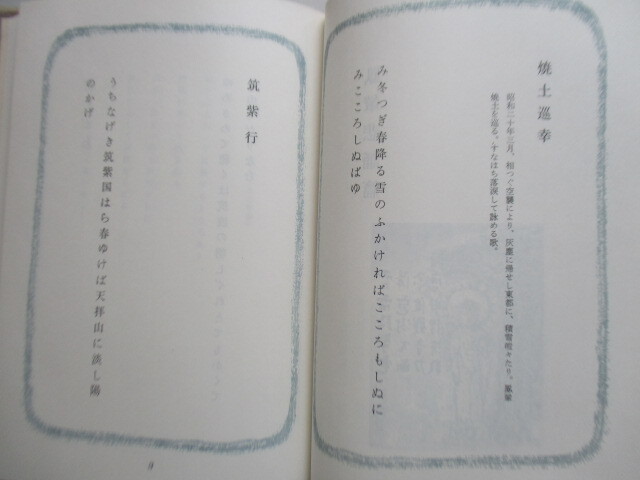 焼土巡幸
昭和二十年三月、相つぐ空襲により、灰燼に帰せし東都に、積雪皚々たり。鳳輦
焼土を巡る。すなはち落涙して詠める歌。
み冬つぎ春降る雪のふかければこころもしぬに
みこころしぬばゆ
筑紫行
うちなげき筑紫国はら春ゆけば天拝山に淡し陽
のかげ
9